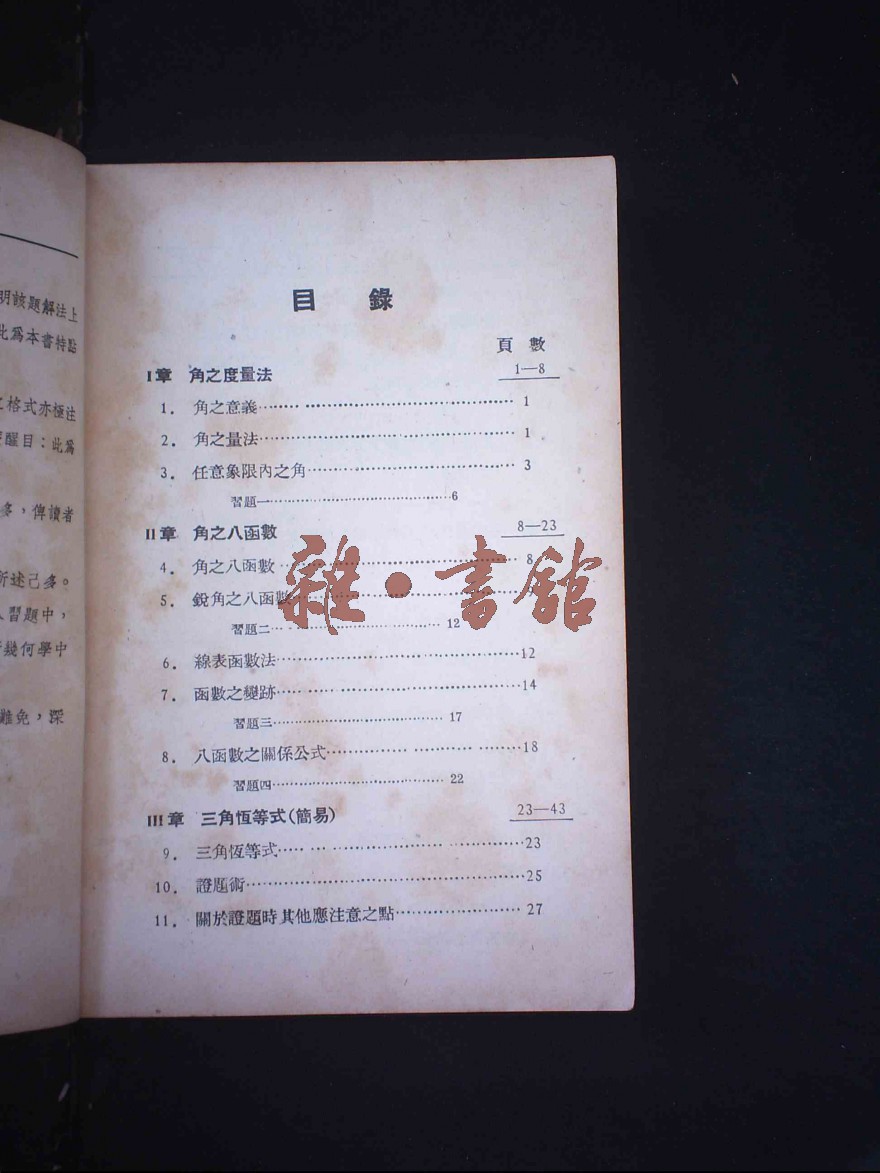 明該題解法上
此爲本書特點
格式亦極注
醒目：此爲
多，俾讀者
所述己多。
習題中，
幾何學中
難免，深
目 錄
頁 數
I章 角之度量法 1—8
1. 角之意義 1
2. 角之量法 1
3. 任意象限內之角 3
習題一 6
II章 角之八函數 8—23
4. 角之八函數 8
5. 銳角之八函數
習題二 12
6. 線表函數法 12
7. 函數之變跡 14
習題三 17
8. 八函數之關係公式 18
習題四 22
III章 三角恆等式(簡易) 23—43
9. 三角恆等式 23
10. 證題術 25
11. 關於證題時其他應注意之點 27
雜·書舘